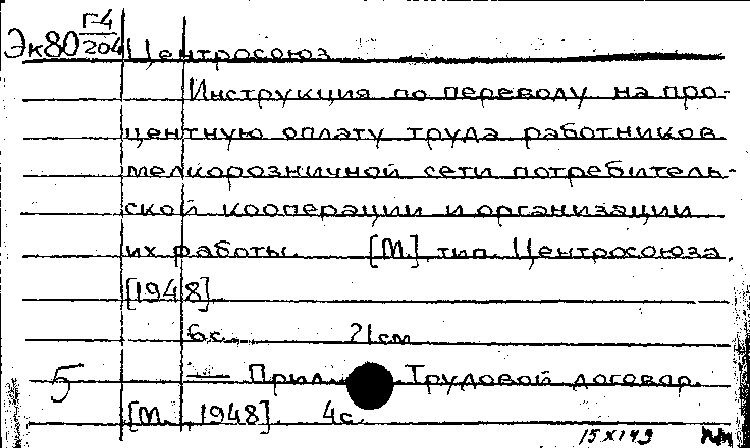 Эк80 Г-4/204 Центросоюз
Инструкция по переводу на про-
центную оплату труда работников
мелкорозничной сети потребитель-
ской кооперации и организации
их работы. [М.] тип. Центросоюза,
[1948].
6с. 21см
— Прил. Трудовой договор.
5
[М., 1948]. 4с.